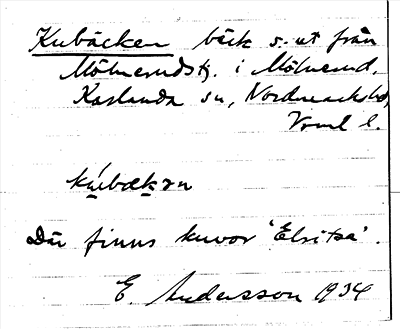 Kubäcken bäck s. ut från
Mölnerudstj. i Mölnerud,
Karlanda sn, Nordmarks hd,
Vrml l.
Där finns kuvor 'Elritsa'.
E. Andersson 1934